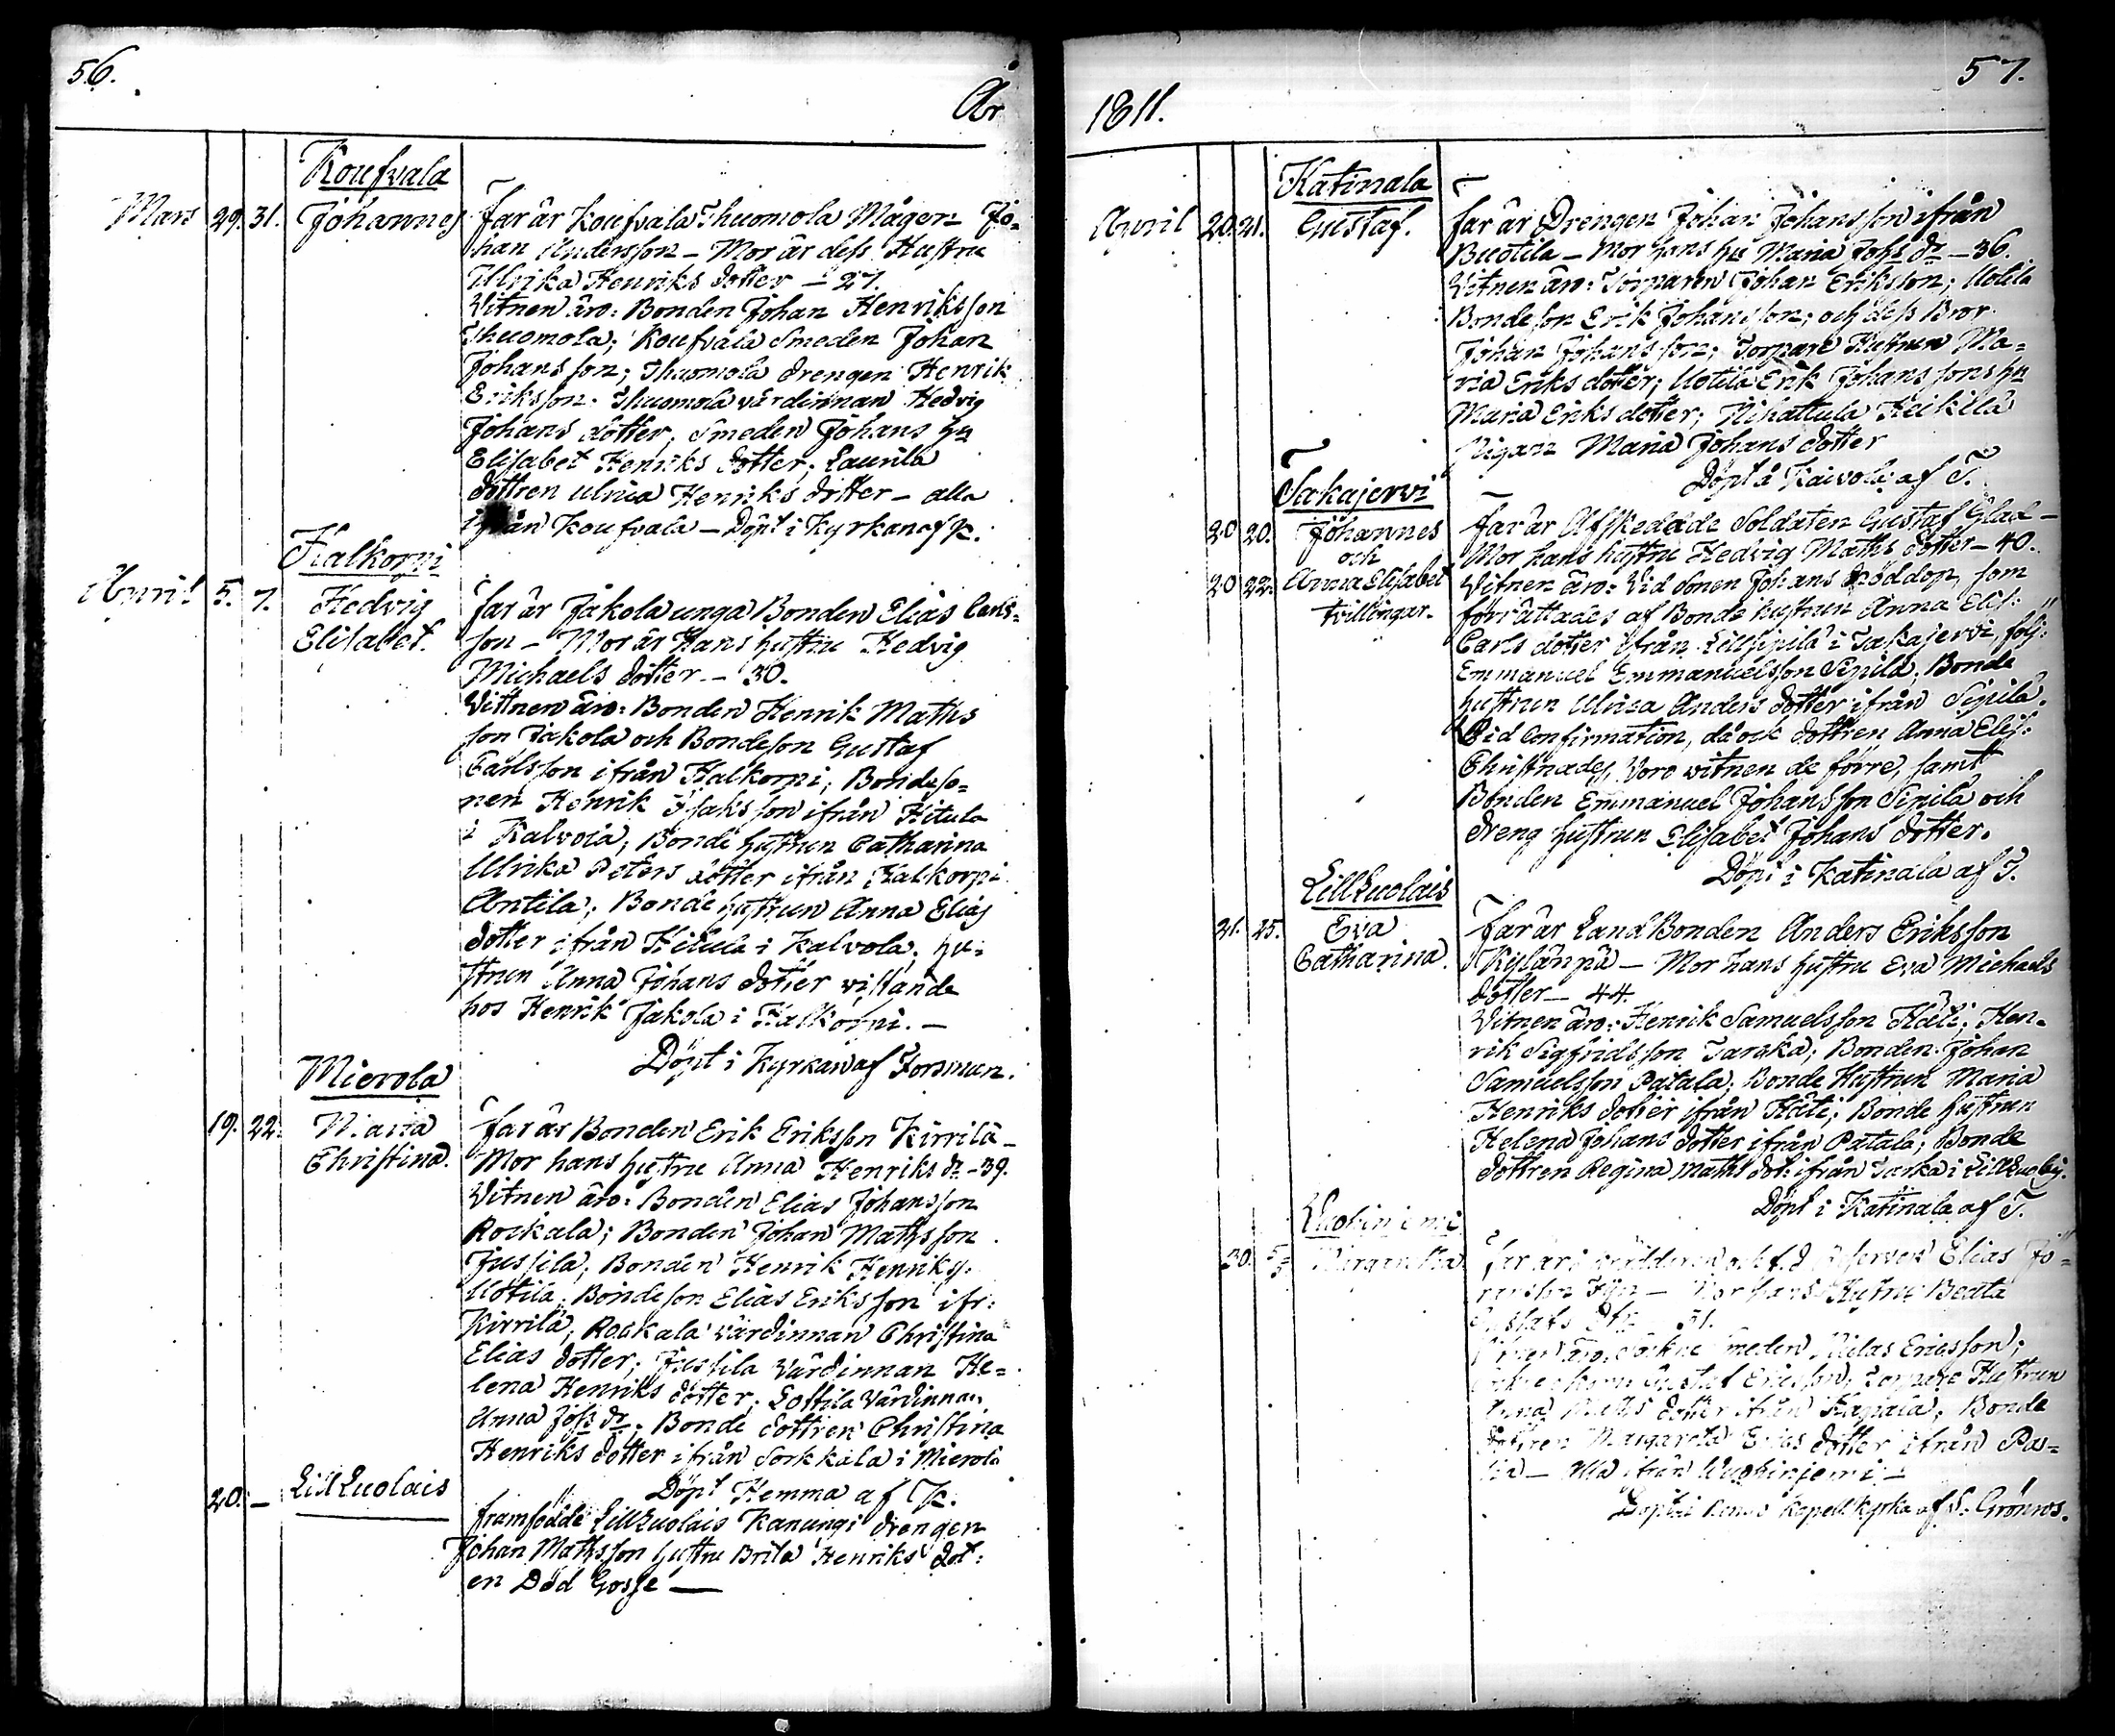 56.
År
Koufvala
Mars 29. 31. Johannes far är Koufvala Thuomola Mågen Jo=
han Andersson – Mor är dess Hustru
Ulrika Henriks dotter – 27.
Vitnen äro: Bonden Johan Henriksson
Thuomola; Koufvala Smeden Johan
Johansson; Thuomola drengen Henrik
Eriksson. Thuomola värdinnan Hedvig
Johans dotter, Smeden Johans hu
Elisabet Henriks dotter; Laurila
dottren Ulrica Henriks dotter – alla
ifrån Koufvala – Döpt i Kyrkan af K.
Halkorpi
April 5. 7. Hedvig far är Jakola unga Bonden Elias Carls=
Elisabet. son – Mor är hans hustru Hedvig
Michaels dotter. – 30.
Vittnen äro: Bonden Henrik Maths
son Jakola och Bondeson Gustaf
Carlsson ifrån Halkorpi; Bondeso=
nen Henrik Isaksson ifrån Hitula
i Kalvola; Bonde hustrun Catharina
Ulrika Peters dotter ifrån Halkorpi
Antila; Bonde hustrun Anna Elias
dotter ifrån Hitula i Kalvola; hu=
strun Anna Johans dotter vistande
hos Henrik Jakola i Halkorpi. –
Döpt i Kyrkan af Forsman.
Mierola
19. 22. Maria far är Bonden Erik Eriksson Kirrilä –
Christina. Mor hans hustru Anna Henriks dr – 39.
Vitnen äro: Bonden Elias Johansson
Rockala; Bonden Johan Mathsson
Jussila; Bonden Henrik Henrikss.
Uotila; Bondeson Elias Eriksson ifr:
Kirrilä; Rockala värdinnan Christina
Elias dotter; Jussila Värdinnan He=
lena Henriks dotter; Lottila Värdinnan
Anna Johs dr; Bonde dottren Christina
Henriks dotter ifrån Sorkkala i Mierola
Döpt Hemma af K.
20. – LillLuolais
framfödde LillLuolais Kanungi drengen
Johan Mathsson hustru Brita Henriks dot:
en Död Gosse –
57.
1811.
Katinala
April 20. 21. Gustaf. far är Drengen Johan Johansson ifrån
Buotila – Mor hans hu Maria Johs dr – 36.
Vitnen äro: Torparen Johan Eriksson; Uotila
Bondeson Erik Johansson; och dess Bror
Johan Johansson; Torpare Hustrun Ma=
ria Eriks dotter; Uotila Erik Johanssons hu
Maria Eriks dotter; Nihattula Heikilä
Pigan Maria Johans dotter
Döpt å Kaivola af T.
Takajervi
20 20. Johannes far är Afskedade Soldaten Gustaf Glad –
och Mor hans hustru Hedvig Maths dotter – 40.
20 22. Anna Elisabet Vitnen äro: Vid Sonen Johans Nöddop, som
tvillingar. förrättades af Bonde hustrun Anna Elis:
Carls dotter ifrån LillSipilä i Takajervi, följ:
Emmanuel Emmanuelsson Sipilä; Bonde
hustrun Ulrica Anders dotter ifrån Sipilä.
Vid Confirmation, då ock dottren Anna Elis:
Christnades, Voro witnen de förre, samt
Bonden Emmanuel Johansson Sipilä och
dreng hustrun Elisabet Johans dotter.
Döpt i Katinala af T.
LillLuolais
21. 25. Eva far är LandBonden Anders Eriksson
Catharina. Kylänpä – Mor hans hustru Eva Michaels
dotter – 44.
Vitnen äro: Henrik Samuelsson Häti; Hen=
rik Sigfridsson Tarska; Bonden Johan
Samuelsson Patala; Bonde Hustrun Maria
Henriks dotter ifrån Häti; Bonde hustrun
Helena Johans dotter ifrån Patala; Bonde
dottren Regina Maths dot: ifrån Tarska i LillLuolais.
Döpt i Katinala af T.
30. far är Elias Jo=
Mor hans Hustru Beata
Gustafs 31.
äro: Smeden Ericsson;
Gustaf Ericsson; Torpare Hustrun
Maths dotter ifrån Bonde
dottren Margareta Elias dotter ifrån Pa=
– Alla ifrån
Döpt i Kapell Kyrka af S. Grönros.